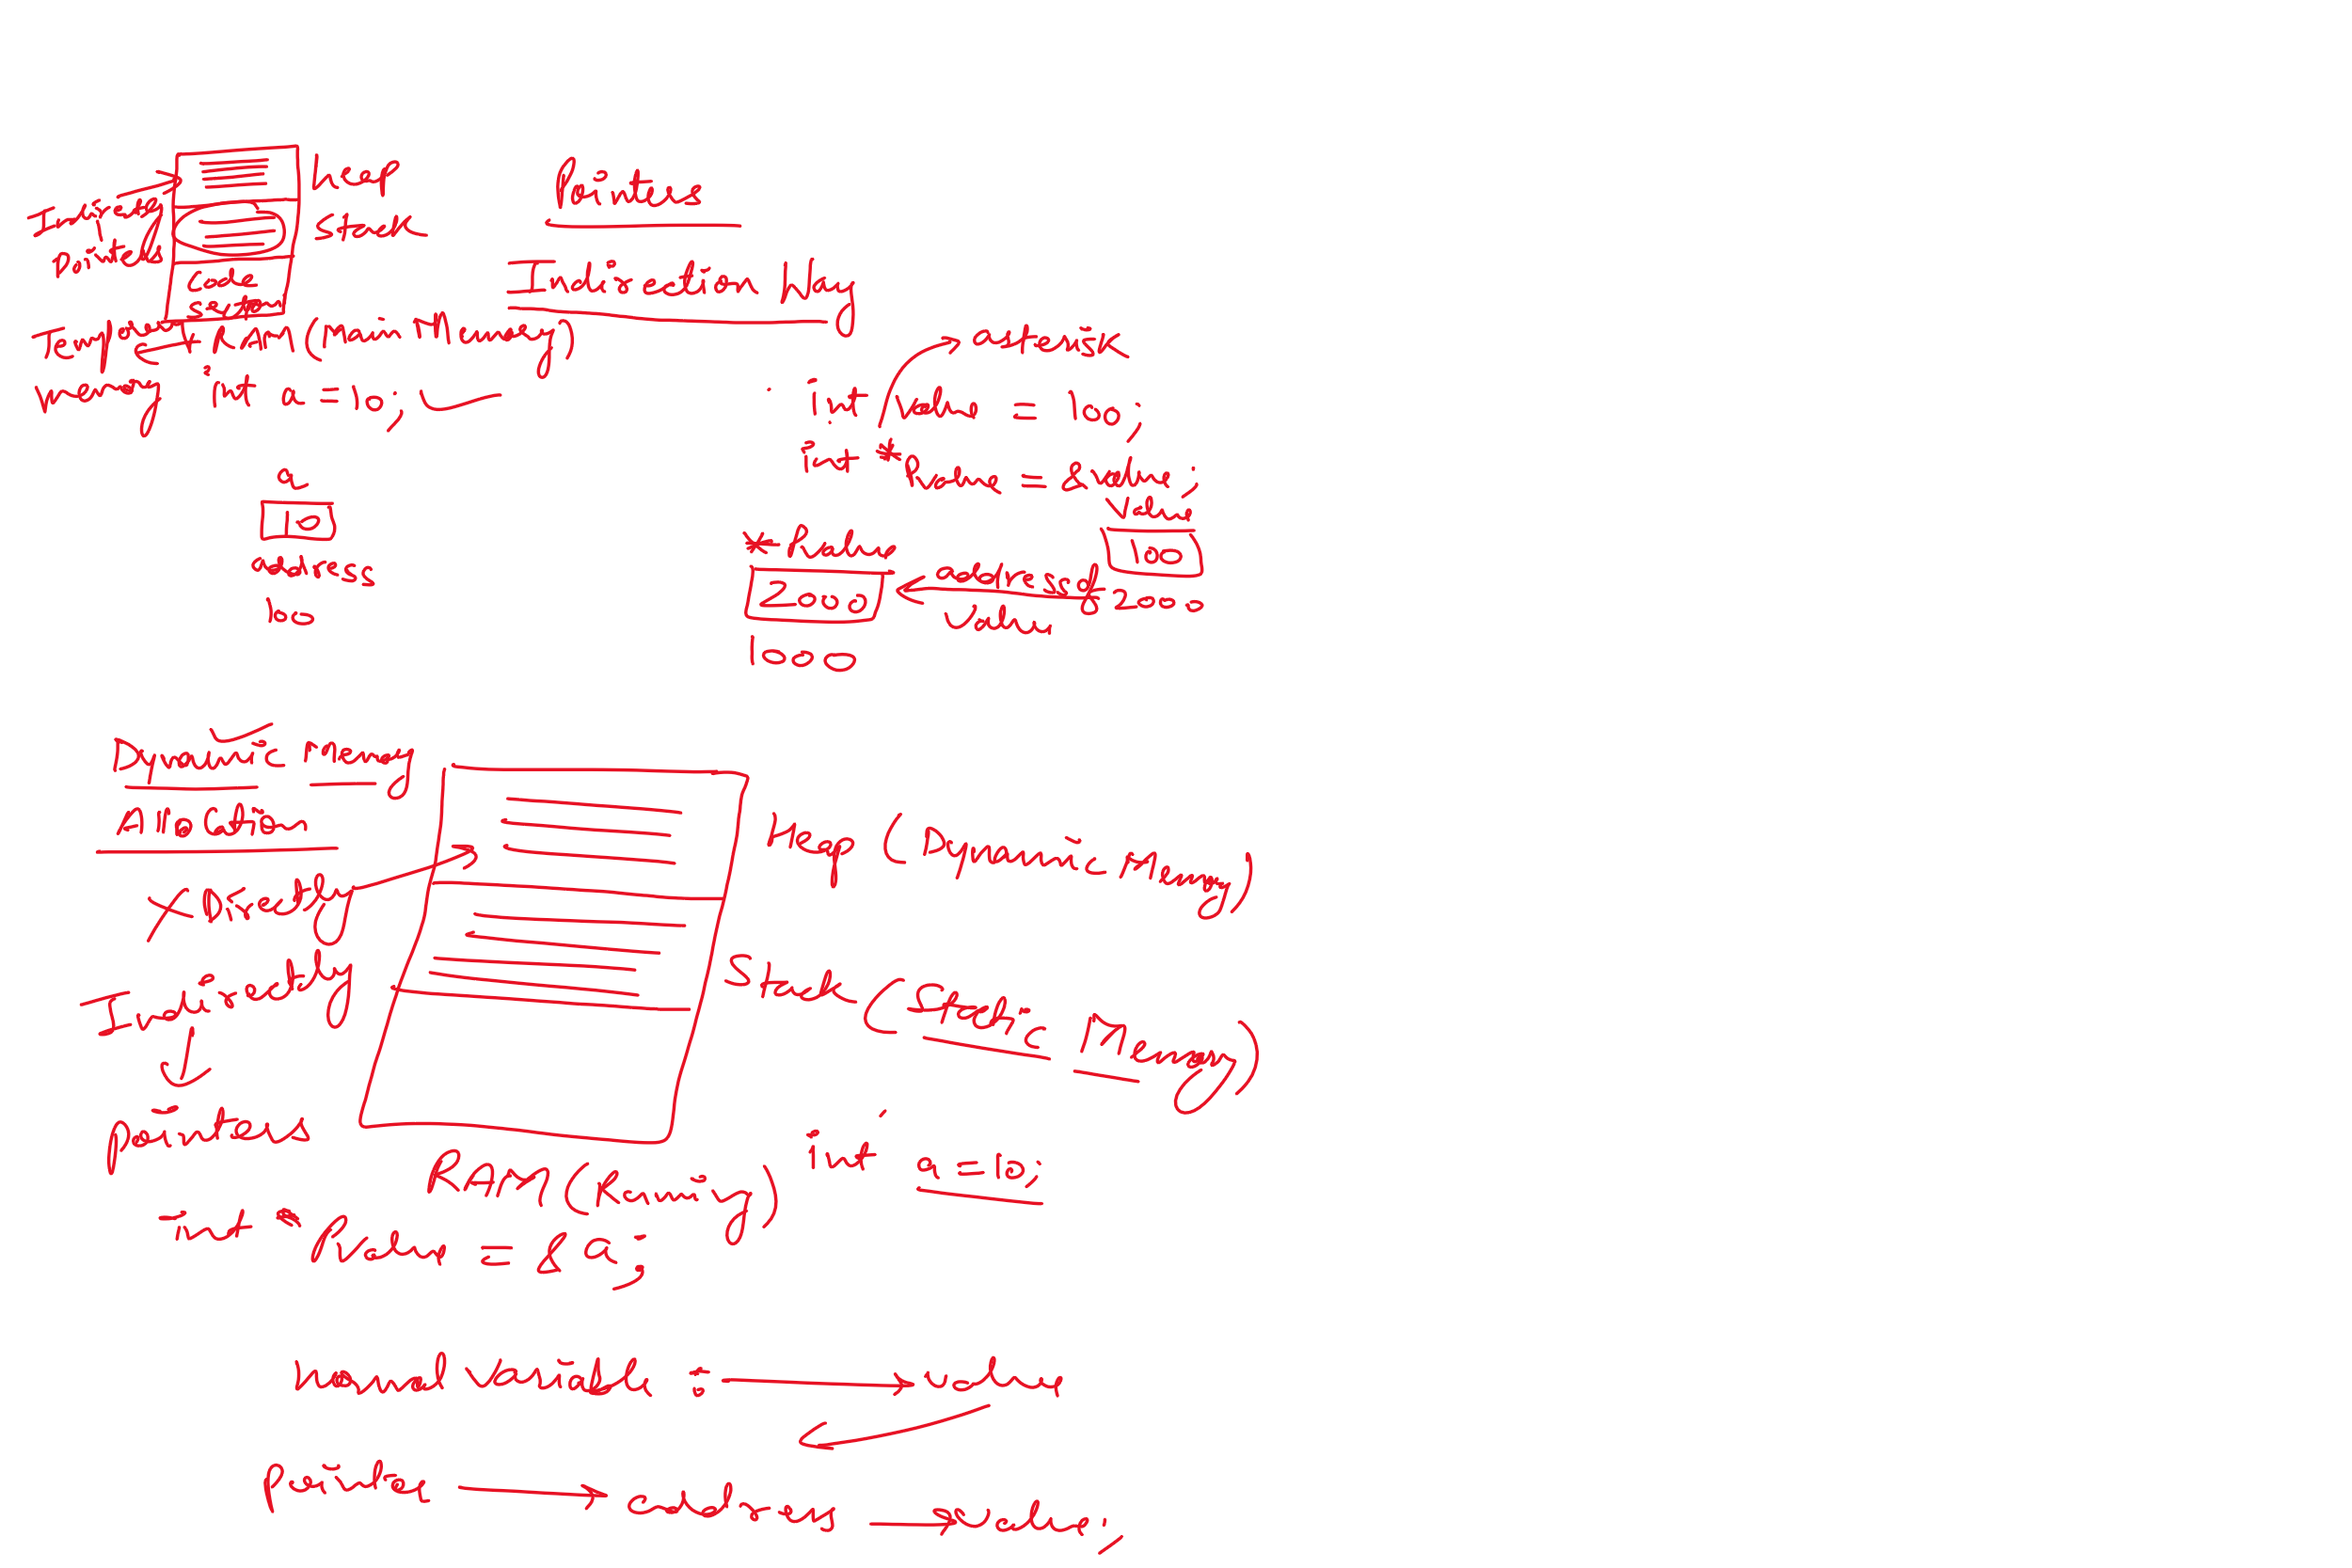 Heap
Stack
Indirectly
pointer
Code
section
Temporary
memory
RAM (Primary Memory)
int a = 10;
a
10
address
100
Pointers
Indirection way
asterisk
int value = 100;
int *Pvalue = &value;
value
100
2000
* Pvalue
2000
1000
address of
value
Dynamic Memory
Allocation
X Directly
Indirectly
pointers
Heap (Dynamic Memory)
Stack (Static Memory)
RAM (Running)
int a = 10;
int *Pvalue = &a;
normal variable : value
Pointer address value;